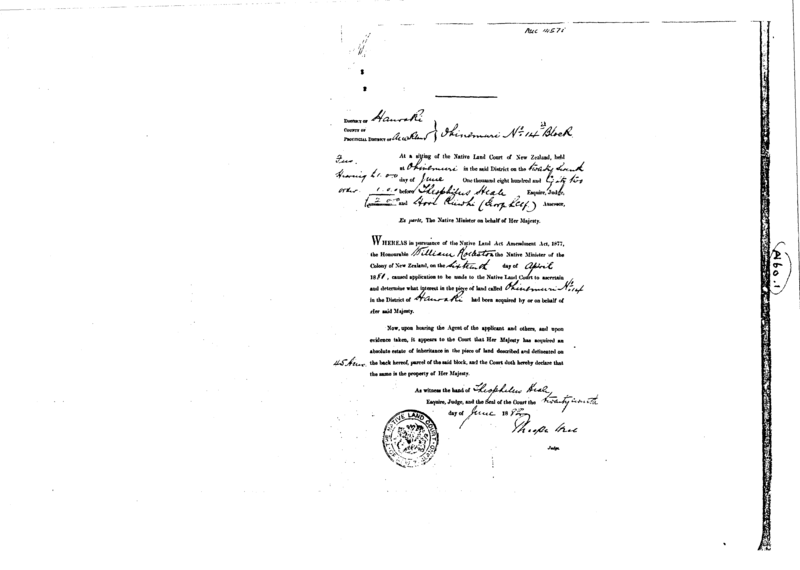 DISTRICT OF Hauraki
COUNTY OF
PROVINCIAL DISTRICT OF Auckland } Ohinemuri No. 14 Block
At a sitting of the Native Land Court of New Zealand, held
at Ohinemuri in the said District on the
Hearing £1.0.0 day of June One thousand eight hundred and Eighty two
order 1.0.0 before Theophilus Heale Esquire, Judge,
£2.0.0 and Assessor.
Ex parte, The Native Minister on behalf of Her Majesty.
WHEREAS in pursuance of the Native Land Act Amendment Act, 1877,
the Honourable William Rolleston the Native Minister of the
Colony of New Zealand, on the Sixteenth day of April
188, caused application to be made to the Native Land Court to ascertain
and determine what interest in the piece of land called Ohinemuri No. 14
in the District of Hauraki had been acquired by or on behalf of
Her said Majesty.
Now, upon hearing the Agent of the applicant and others, and upon
evidence taken, it appears to the Court that Her Majesty has acquired an
absolute estate of inheritance in the piece of land described and delineated on
45 Acres the back hereof, parcel of the said block, and the Court doth hereby declare that
the same is the property of Her Majesty.
As witness the hand of Theophilus Heale
Esquire, Judge, and the Seal of the Court the
day of June 1882
Judge.
THE NATIVE LAND COURT
A60.1